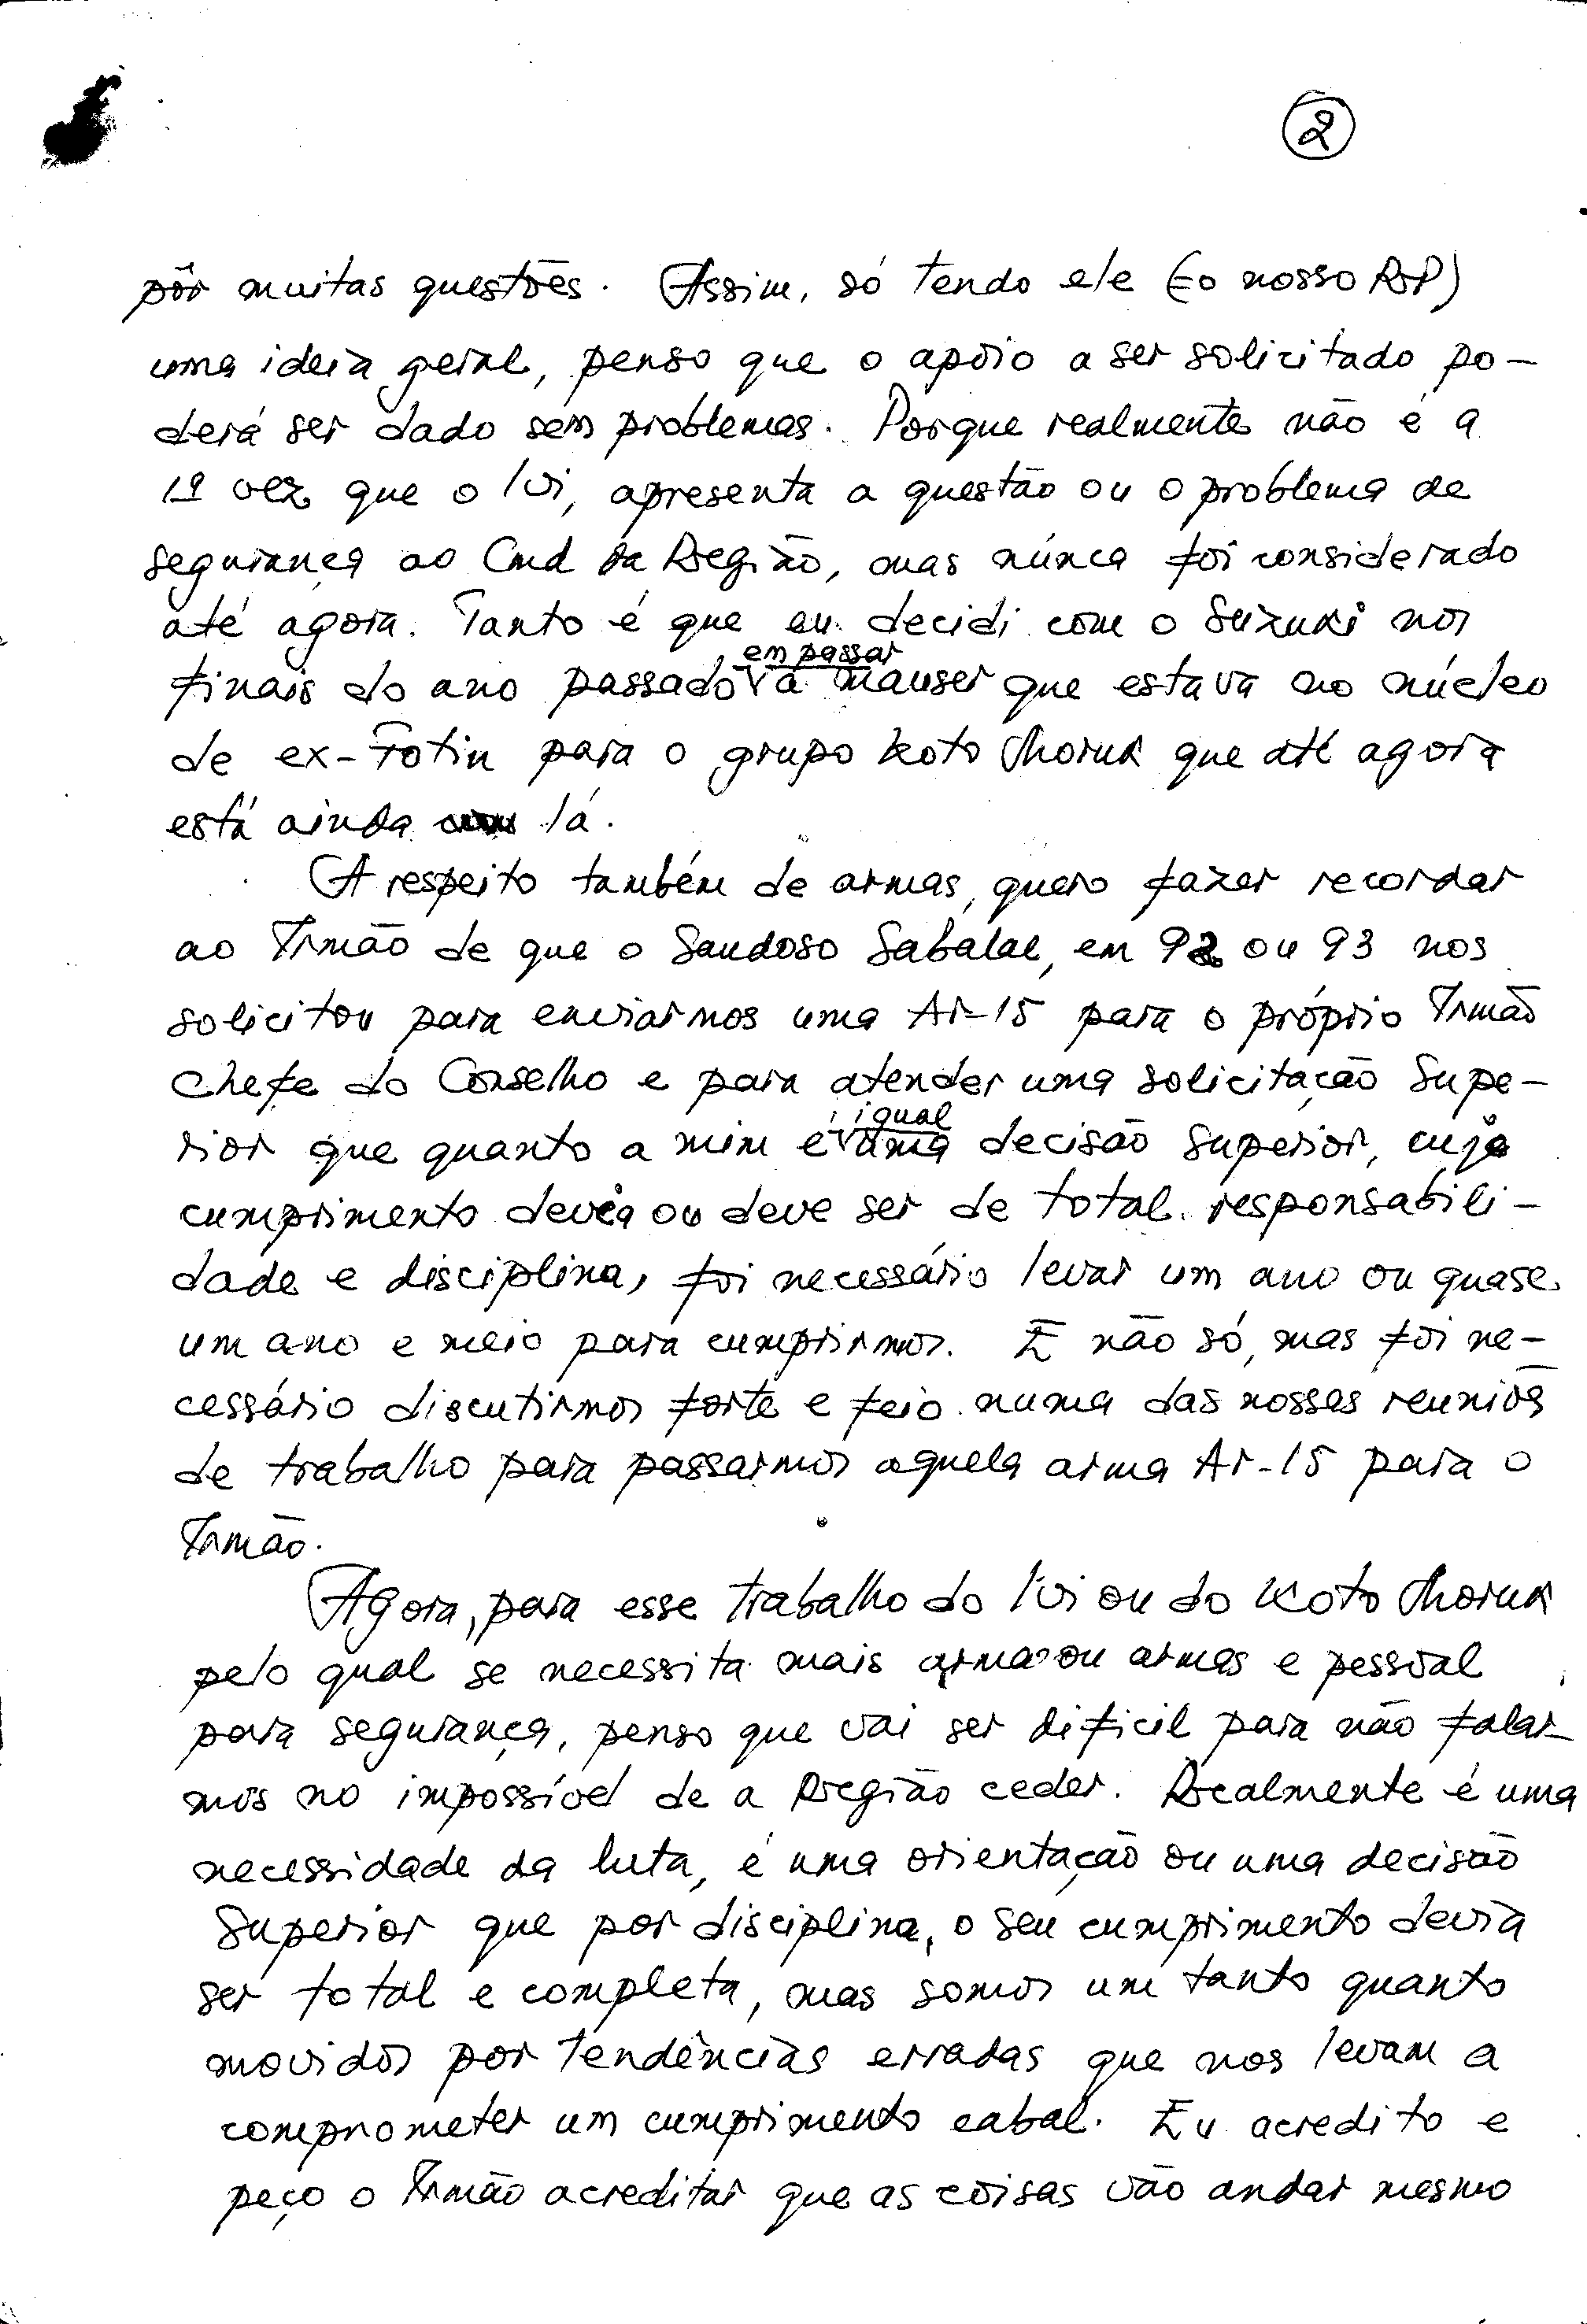 2
pôr muitas questões. Assim, só tendo ele (o nosso R.P)
uma ideia geral, penso que o apoio a ser solicitado po-
derá ser dado sem problemas. Porque realmente não é a
1ª vez que o lvi, apresenta a questão ou o problema de
segurança ao Cmd da Região, mas núnca foi considerado
até agora. Tanto é que eu decidi com o Suzuki nos
em passar
finais do ano passado a mauser que estava no núcleo
de ex-Fotin para o grupo Koto Moruk que até agora
está ainda lá.
A respeito também de armas, quero fazer recordar
ao Irmão de que o Saudoso Sabalae, em 92 ou 93 nos
solicitou para enviarmos uma Ar-15 para o próprio Irmão
Chefe do Conselho e para atender uma solicitação Supe-
igual
rior que quanto a mim é uma decisão Superior, cujo
cumprimento devia ou deve ser de total responsabili-
dade e disciplina, foi necessário levar um ano ou quase
um ano e meio para cumprirmos. E não só, mas foi ne-
cessário discutirmos forte e feio numa das nossas reuniões
de trabalho para passarmos aquela arma Ar-15 para o
Irmão.
Agora, para esse trabalho do lvi ou do Koto Moruk
pelo qual se necessita mais arma ou armas e pessoal
para segurança, penso que vai ser dificil para não falar-
mos no impossível de a Região ceder. Realmente é uma
necessidade da luta, é uma orientação ou uma decisão
Superior que por disciplina, o seu cumprimento devia
ser total e completa, mas somos um tanto quanto
movidos por tendências erradas que nos levam a
comprometer um cumprimento cabal. Eu acredito e
peço o Irmão acreditar que as coisas vão andar mesmo